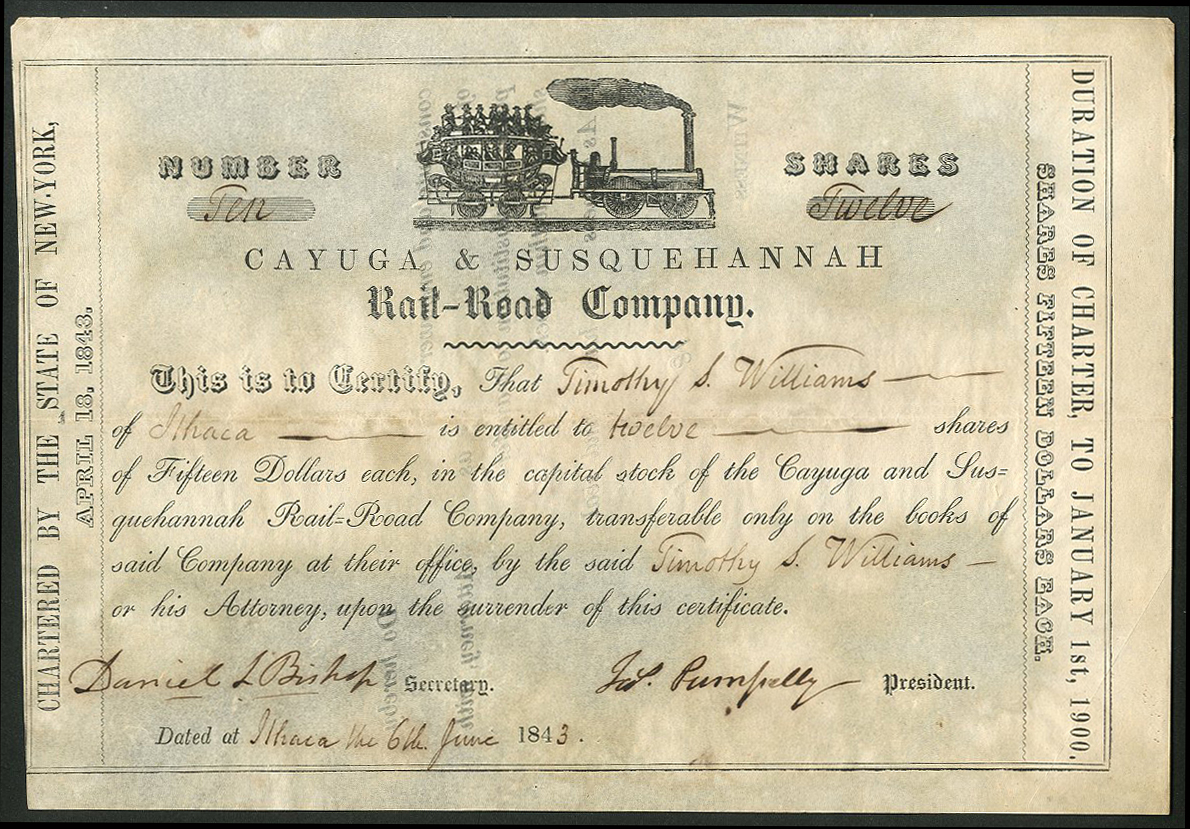 CHARTERED BY THE STATE OF NEW-YORK,
APRIL 18, 1843.
NUMBER
Ten
SHARES
Twelve
CAYUGA & SUSQUEHANNAH
Rail-Road Company.
This is to Certify, That Timothy S. Williams
of Ithaca is entitled to twelve shares
of Fifteen Dollars each, in the capital stock of the Cayuga and Sus=
quehannah Rail=Road Company, transferable only on the books of
said Company at their office, by the said Timothy S. Williams
or his Attorney, upon the surrender of this certificate.
Daniel L Bishop Secretary.
Jas. Pumpelly President.
Dated at Ithaca the 6th. June 1843.
SHARES FIFTEEN DOLLARS EACH.
DURATION OF CHARTER, TO JANUARY 1st, 1900.